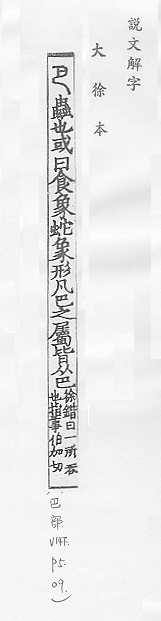 説文解字
大徐本
巴蟲也或曰食象蛇象形凡巴之屬皆从巴
徐鍇曰一所吞
也指事伯加切
(巴部
V147.
P5.
09.)